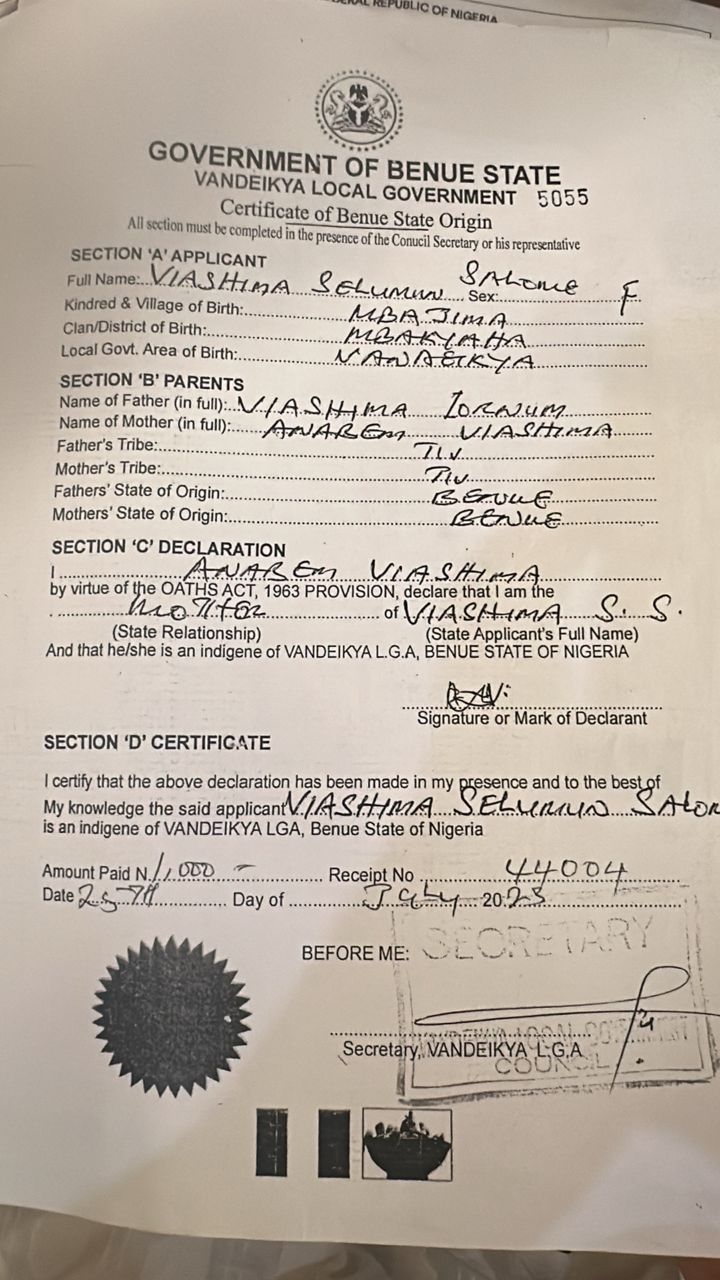 REPUBLIC OF NIGERIA
GOVERNMENT OF BENUE STATE
VANDEIKYA LOCAL GOVERNMENT 5055
Certificate of Benue State Origin
All section must be completed in the presence of the Conucil Secretary or his representative
SECTION 'A' APPLICANT
Full Name: VIASHIMA SELUMUN SALOME Sex: F
Kindred & Village of Birth: MBAJIMA
Clan/District of Birth: MBAKYAHA
Local Govt. Area of Birth: VANDEIKYA
SECTION 'B' PARENTS
Name of Father (in full): VIASHIMA IORNUM
Name of Mother (in full): ANAREM VIASHIMA
Father's Tribe: TIV
Mother's Tribe: TIV
Fathers' State of Origin: BENUE
Mothers' State of Origin: BENUE
SECTION 'C' DECLARATION
I ANAREM VIASHIMA
by virtue of the OATHS ACT, 1963 PROVISION, declare that I am the
MOTHER of VIASHIMA S. S.
(State Relationship) (State Applicant's Full Name)
And that he/she is an indigene of VANDEIKYA L.G.A, BENUE STATE OF NIGERIA
Signature or Mark of Declarant
SECTION 'D' CERTIFICATE
I certify that the above declaration has been made in my presence and to the best of
My knowledge the said applicant VIASHIMA SELUMUN SALOM
is an indigene of VANDEIKYA LGA, Benue State of Nigeria
Amount Paid N 1,000 - Receipt No 44004
Date 25TH Day of July 2023
BEFORE ME: SECRETARY
Secretary, VANDEIKYA L.G.A
COUNCIL